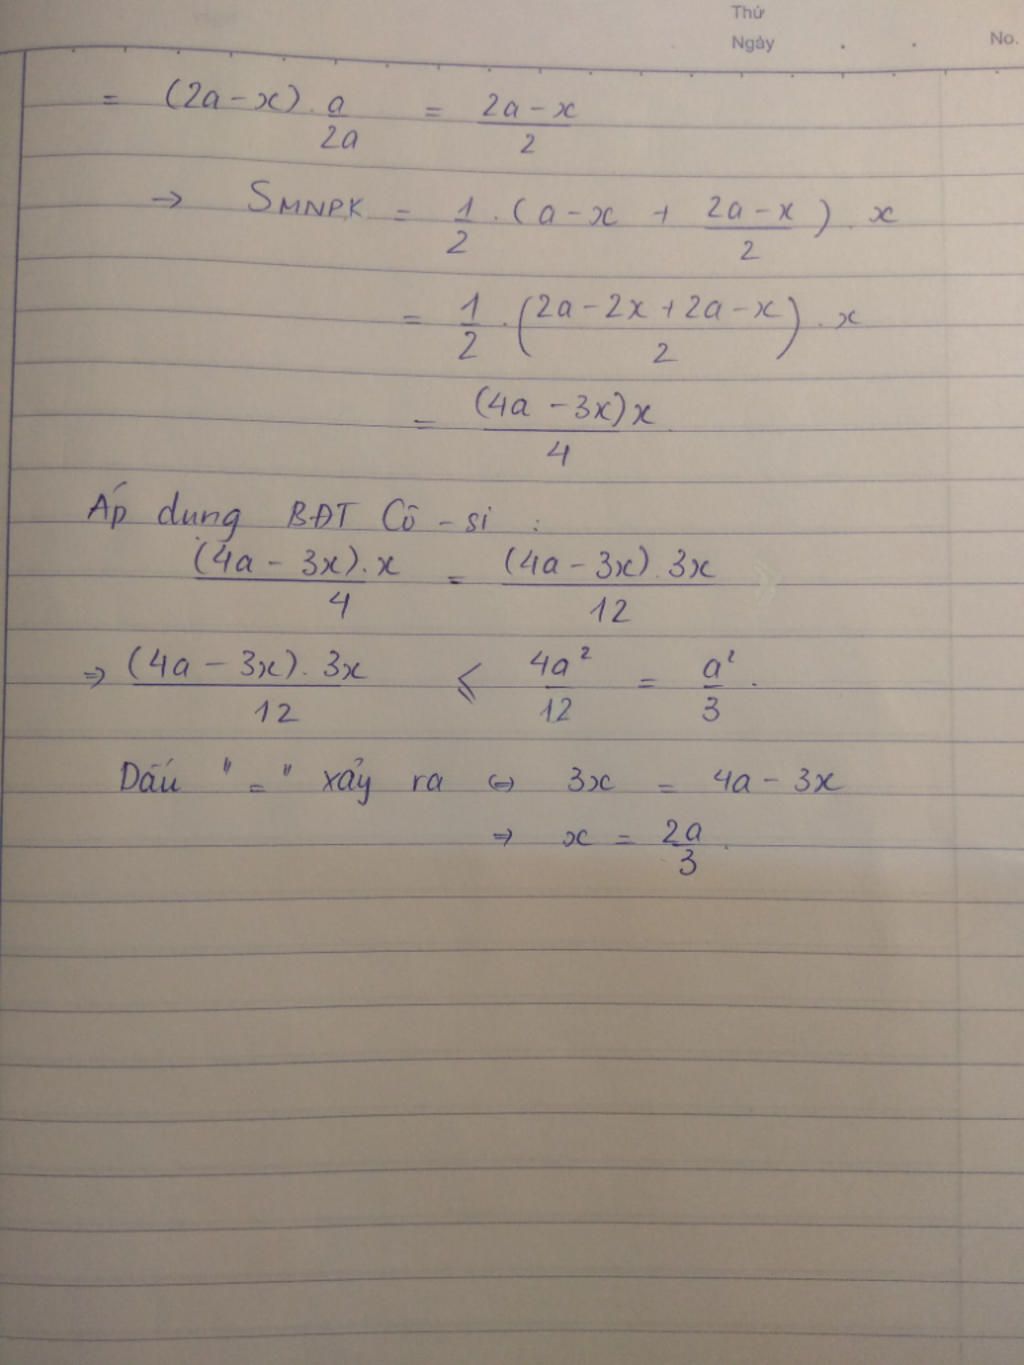 Thứ
Ngày . . No.
= (2a-x) . a/2a = (2a-x)/2
→ SMNPK = 1/2 . (a-x + (2a-x)/2) . x
= 1/2 . ((2a-2x+2a-x)/2) . x
= (4a-3x)x/4
Áp dung BĐT Cô-si :
(4a-3x).x/4 = (4a-3x).3x/12
⇒ (4a-3x).3x/12 ≤ 4a²/12 = a²/3 .
Dấu "=" xảy ra ⇔ 3x = 4a-3x
⇒ x = 2a/3 .